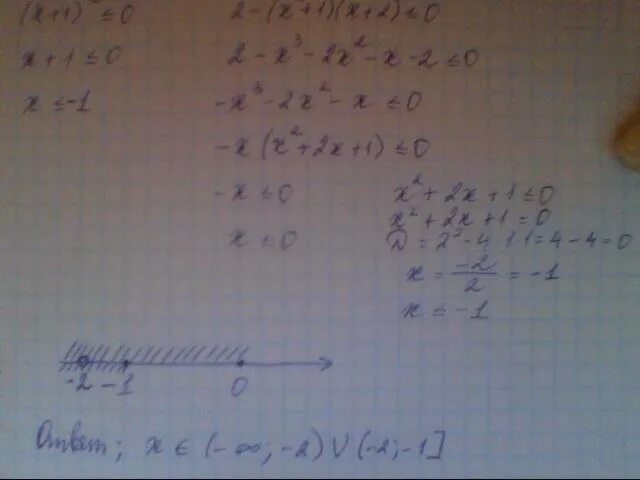 (x+1)² ≤ 0
x+1 ≤ 0
x ≤ -1
2-(x²+1)(x+2) ≤ 0
2-x³-2x²-x-2 ≤ 0
-x³-2x²-x ≤ 0
-x(x²+2x+1) ≤ 0
-x ≤ 0
x ≤ 0
x²+2x+1 ≤ 0
x²+2x+1 = 0
D = 2²-4·1·1=4-4=0
x = -2/2 = -1
x ≤ -1
-2 -1 0
Ответ; x ∈ (-∞; -2) ∪ (-2; -1]